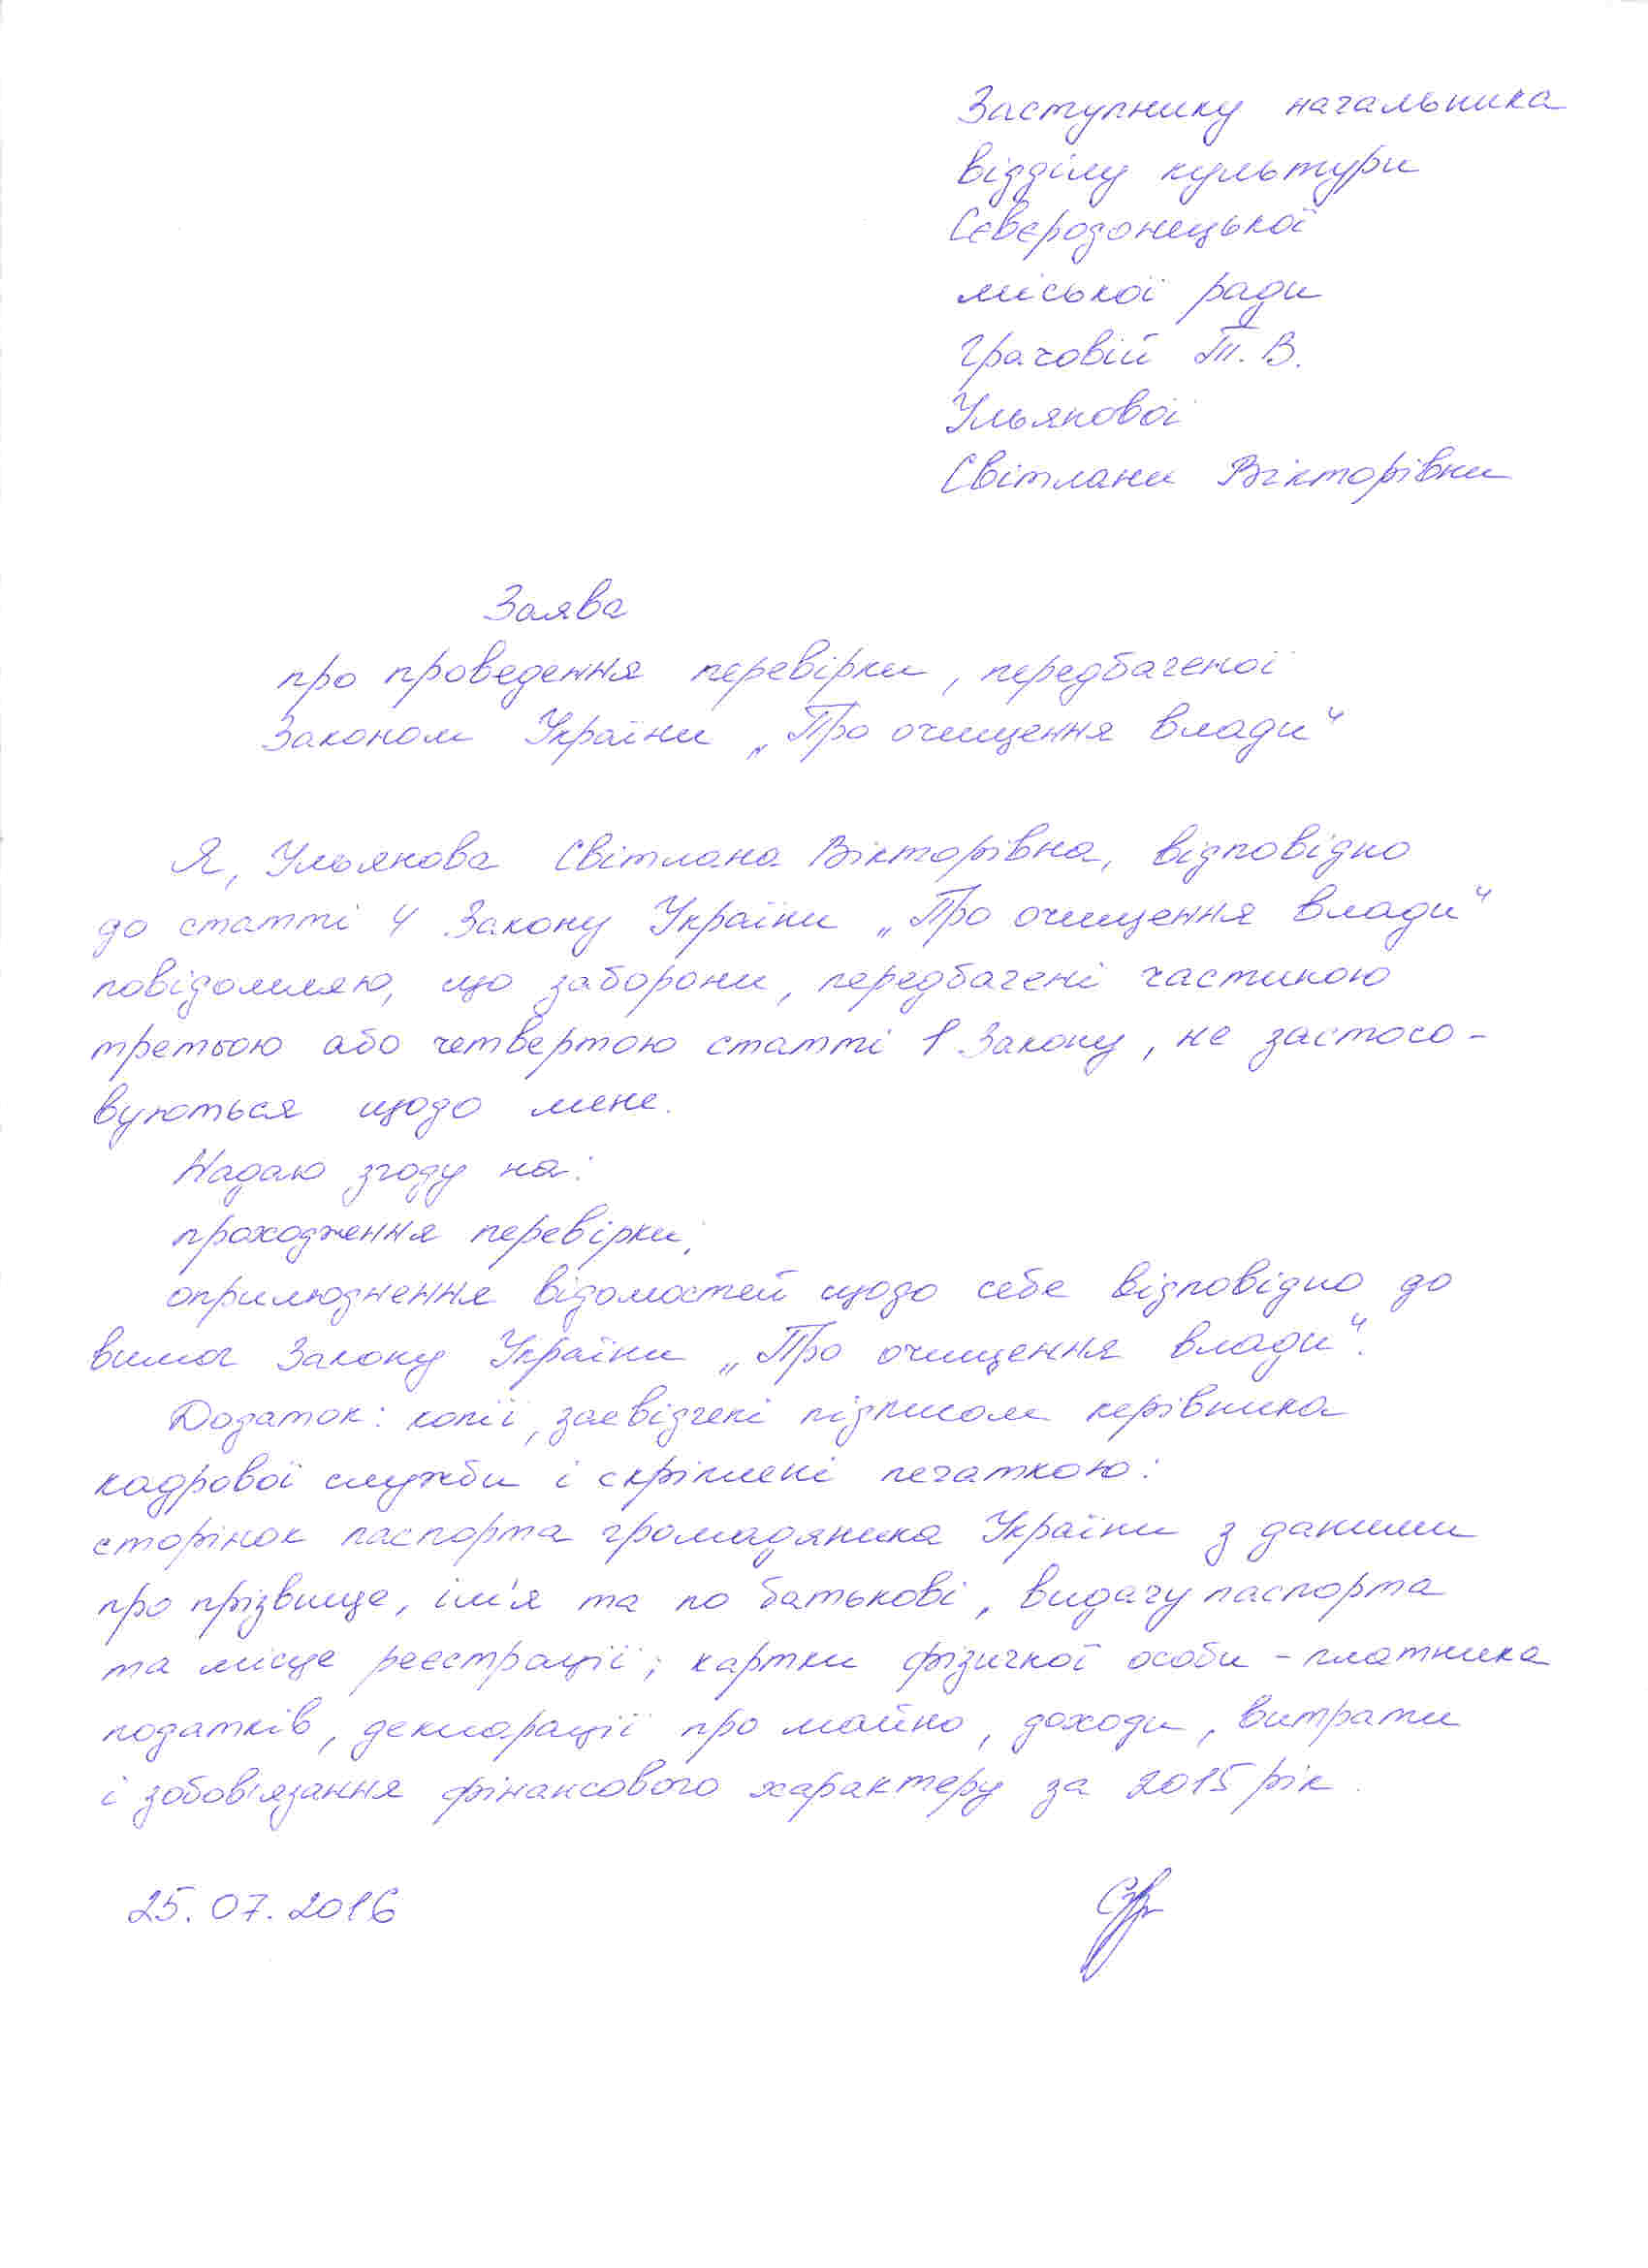 Заступнику начальника
відділу культури
Сєвєродонецької
міської ради
Грачовій Т. В.
Ульянової
Світлани Вікторівни
Заява
про проведення перевірки, передбаченої
Законом України „Про очищення влади“
Я, Ульянова Світлана Вікторівна, відповідно
до статті 4 Закону України „Про очищення влади“
повідомляю, що заборони, передбачені частиною
третьою або четвертою статті 1 Закону, не застосо-
вуються щодо мене.
Надаю згоду на:
проходження перевірки;
оприлюднення відомостей щодо себе відповідно до
вимог Закону України „Про очищення влади“.
Додаток: копії, засвідчені підписом керівника
кадрової служби і скріплені печаткою:
сторінок паспорта громадянина України з даними
про прізвище, ім'я та по батькові, видачу паспорта
та місце реєстрації; картки фізичної особи - платника
податків, декларації про майно, доходи, витрати
і зобов'язання фінансового характеру за 2015 рік.
25.07.2016